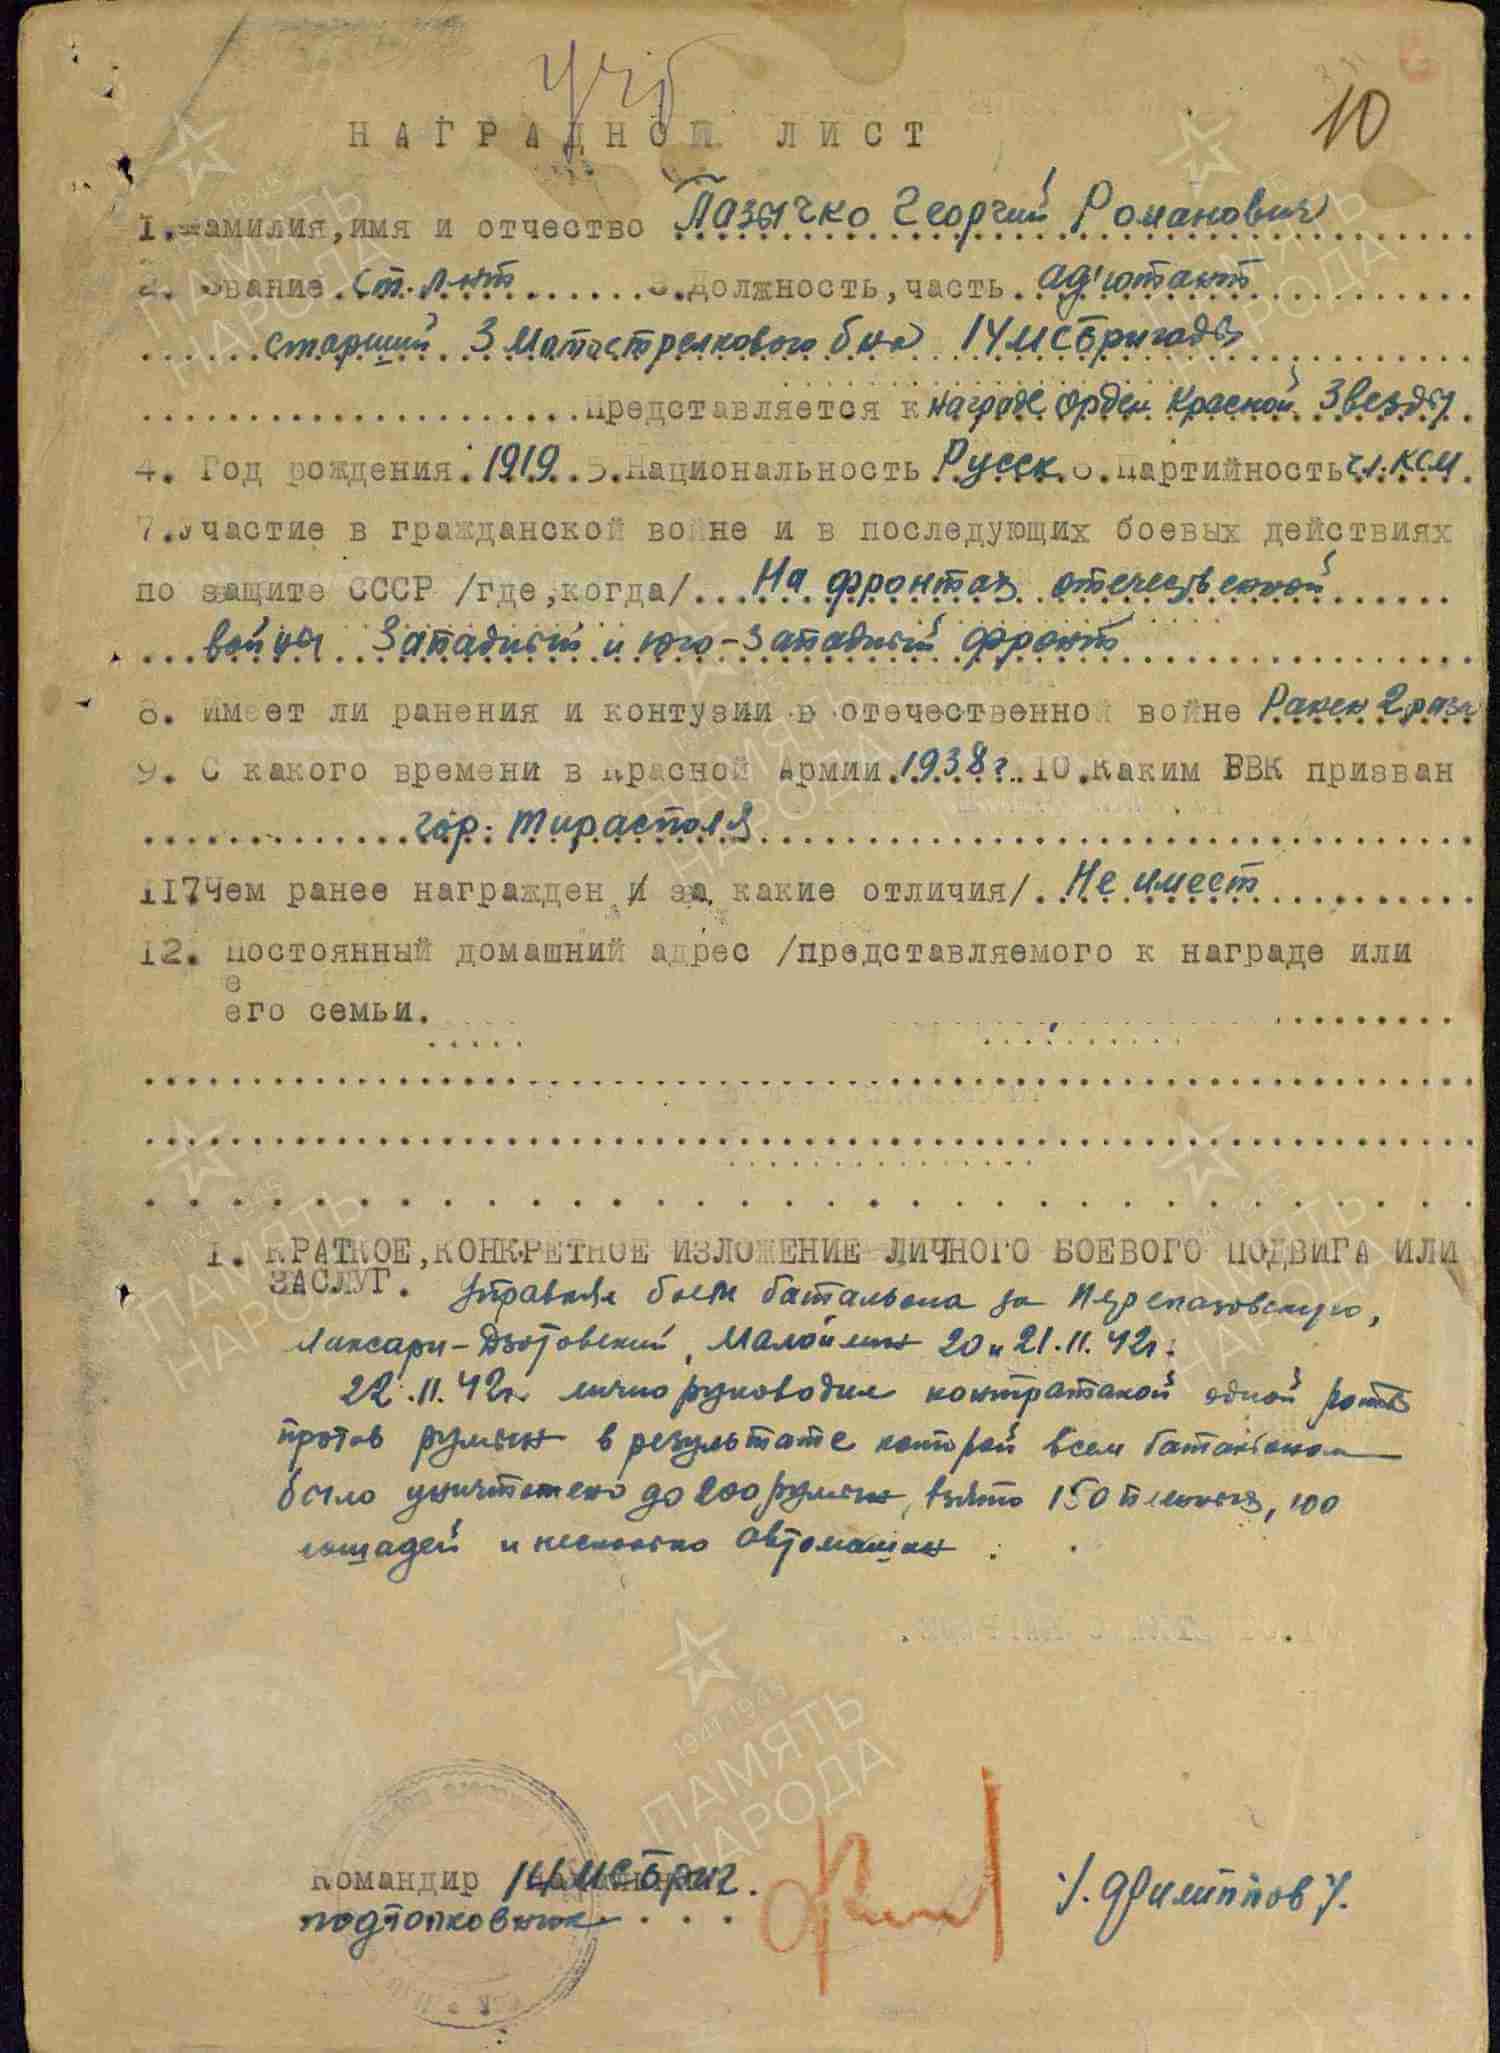 учб
10
НАГРАДНОЙ ЛИСТ
1. Фамилия, имя и отчество Лазычко Георгий Романович
2. Звание ст. л-нт 3. Должность, часть ад'ютант
старший 3 Мотострелкового б-на 14 МСБригады
Представляется к награде Орден Красной Звезды
4. Год рождения 1919 5. Национальность Русск 6. Партийность чл. КСМ
7. Участие в гражданской войне и в последующих боевых действиях
по защите СССР /где, когда/ На фронтах отечественной
войны Западный и юго-Западный фронт
8. Имеет ли ранения и контузии в отечественной войне Ранен 2 раза
9. С какого времени в Красной Армии 1938 г. 10. Каким РВК призван
гор. Тирасполя
11. Чем ранее награжден /и за какие отличия/ Не имеет
12. Постоянный домашний адрес /представляемого к награде или
е
его семьи.
I. КРАТКОЕ, КОНКРЕТНОЕ ИЗЛОЖЕНИЕ ЛИЧНОГО БОЕВОГО ПОДВИГА ИЛИ
ЗАСЛУГ. Управляя боем батальона за Перелазовскую,
Жирковский, Малойлин 20 и 21.11.42г.
22.11.42г. лично руководил контратакой одной роты
против румын в результате которой всем батальоном
было уничтожено до 200 румын, взято 150 пленных, 100
лошадей и несколько автомашин.
Командир 14 МСБриг.
подполковник
/. Филиппов /.
1941 1945
ПАМЯТЬ
НАРОДА